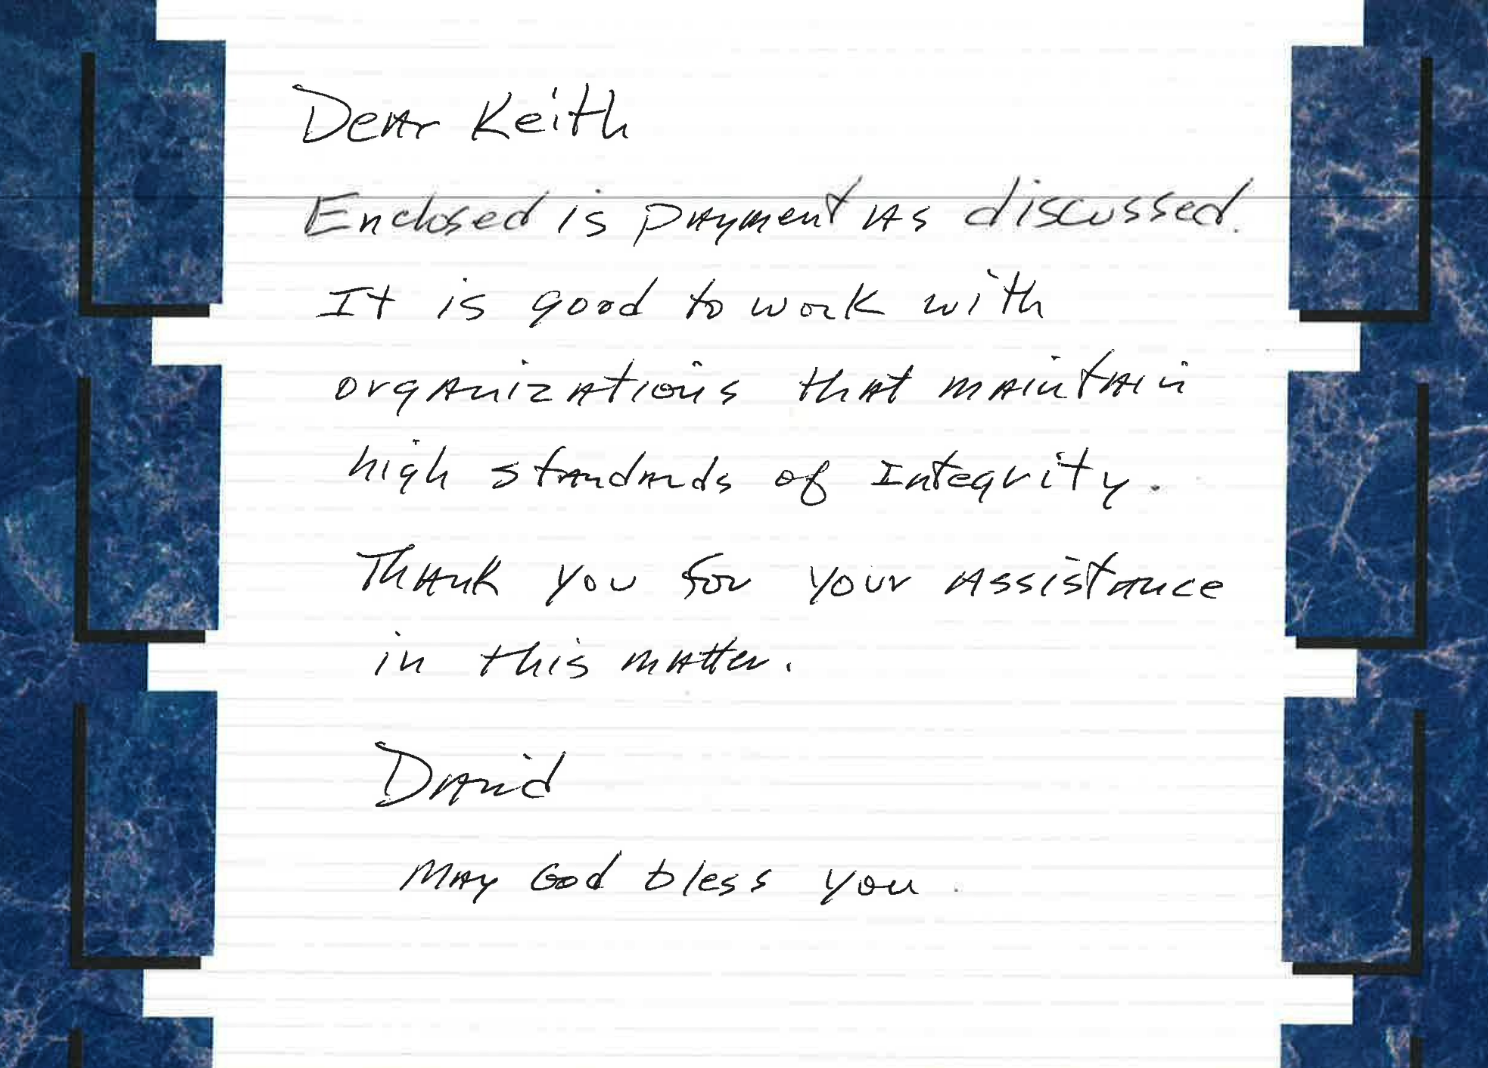 Dear Keith
Enclosed is payment as discussed.
It is good to work with
organizations that maintain
high standards of Integrity.
Thank you for your assistance
in this matter.
David
May God bless you.